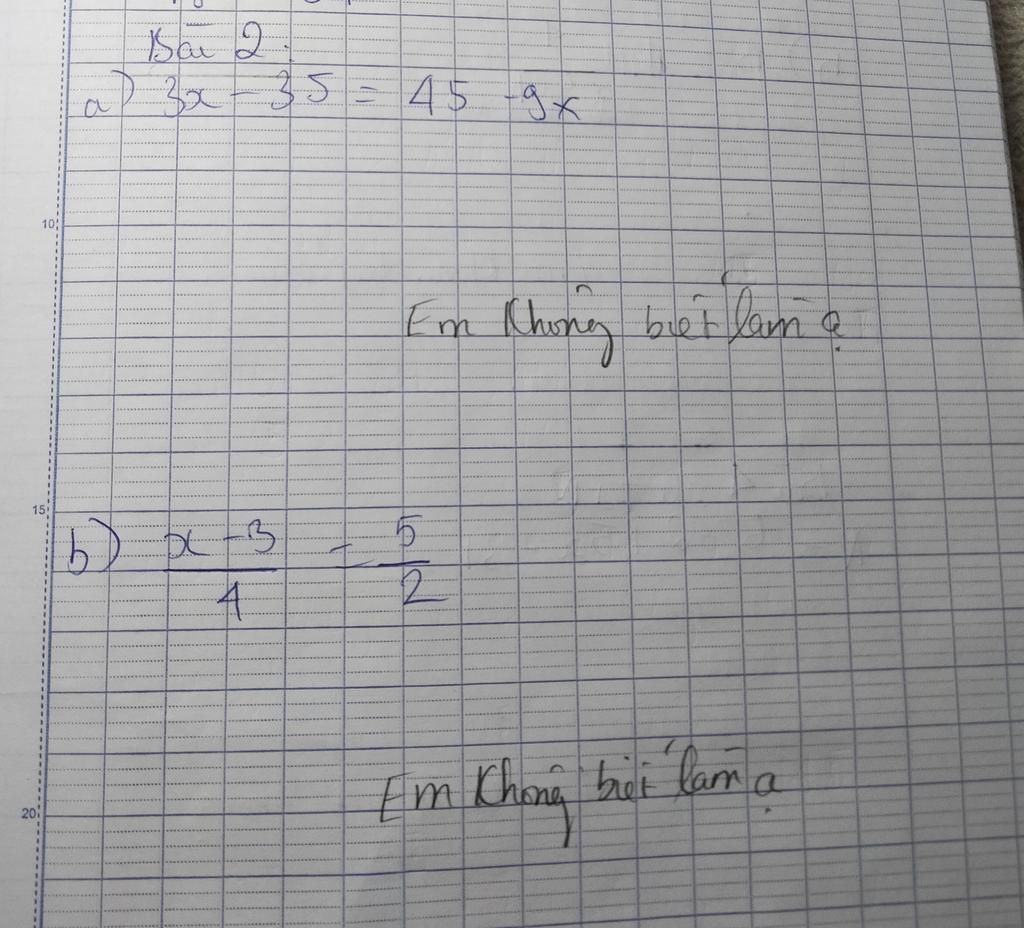 Bài 2:
a) 3x - 35 = 45 - 9x
10
Em không biết làm ạ
15
b) x - 3 / 4 = 5 / 2
Em không biết làm ạ
20